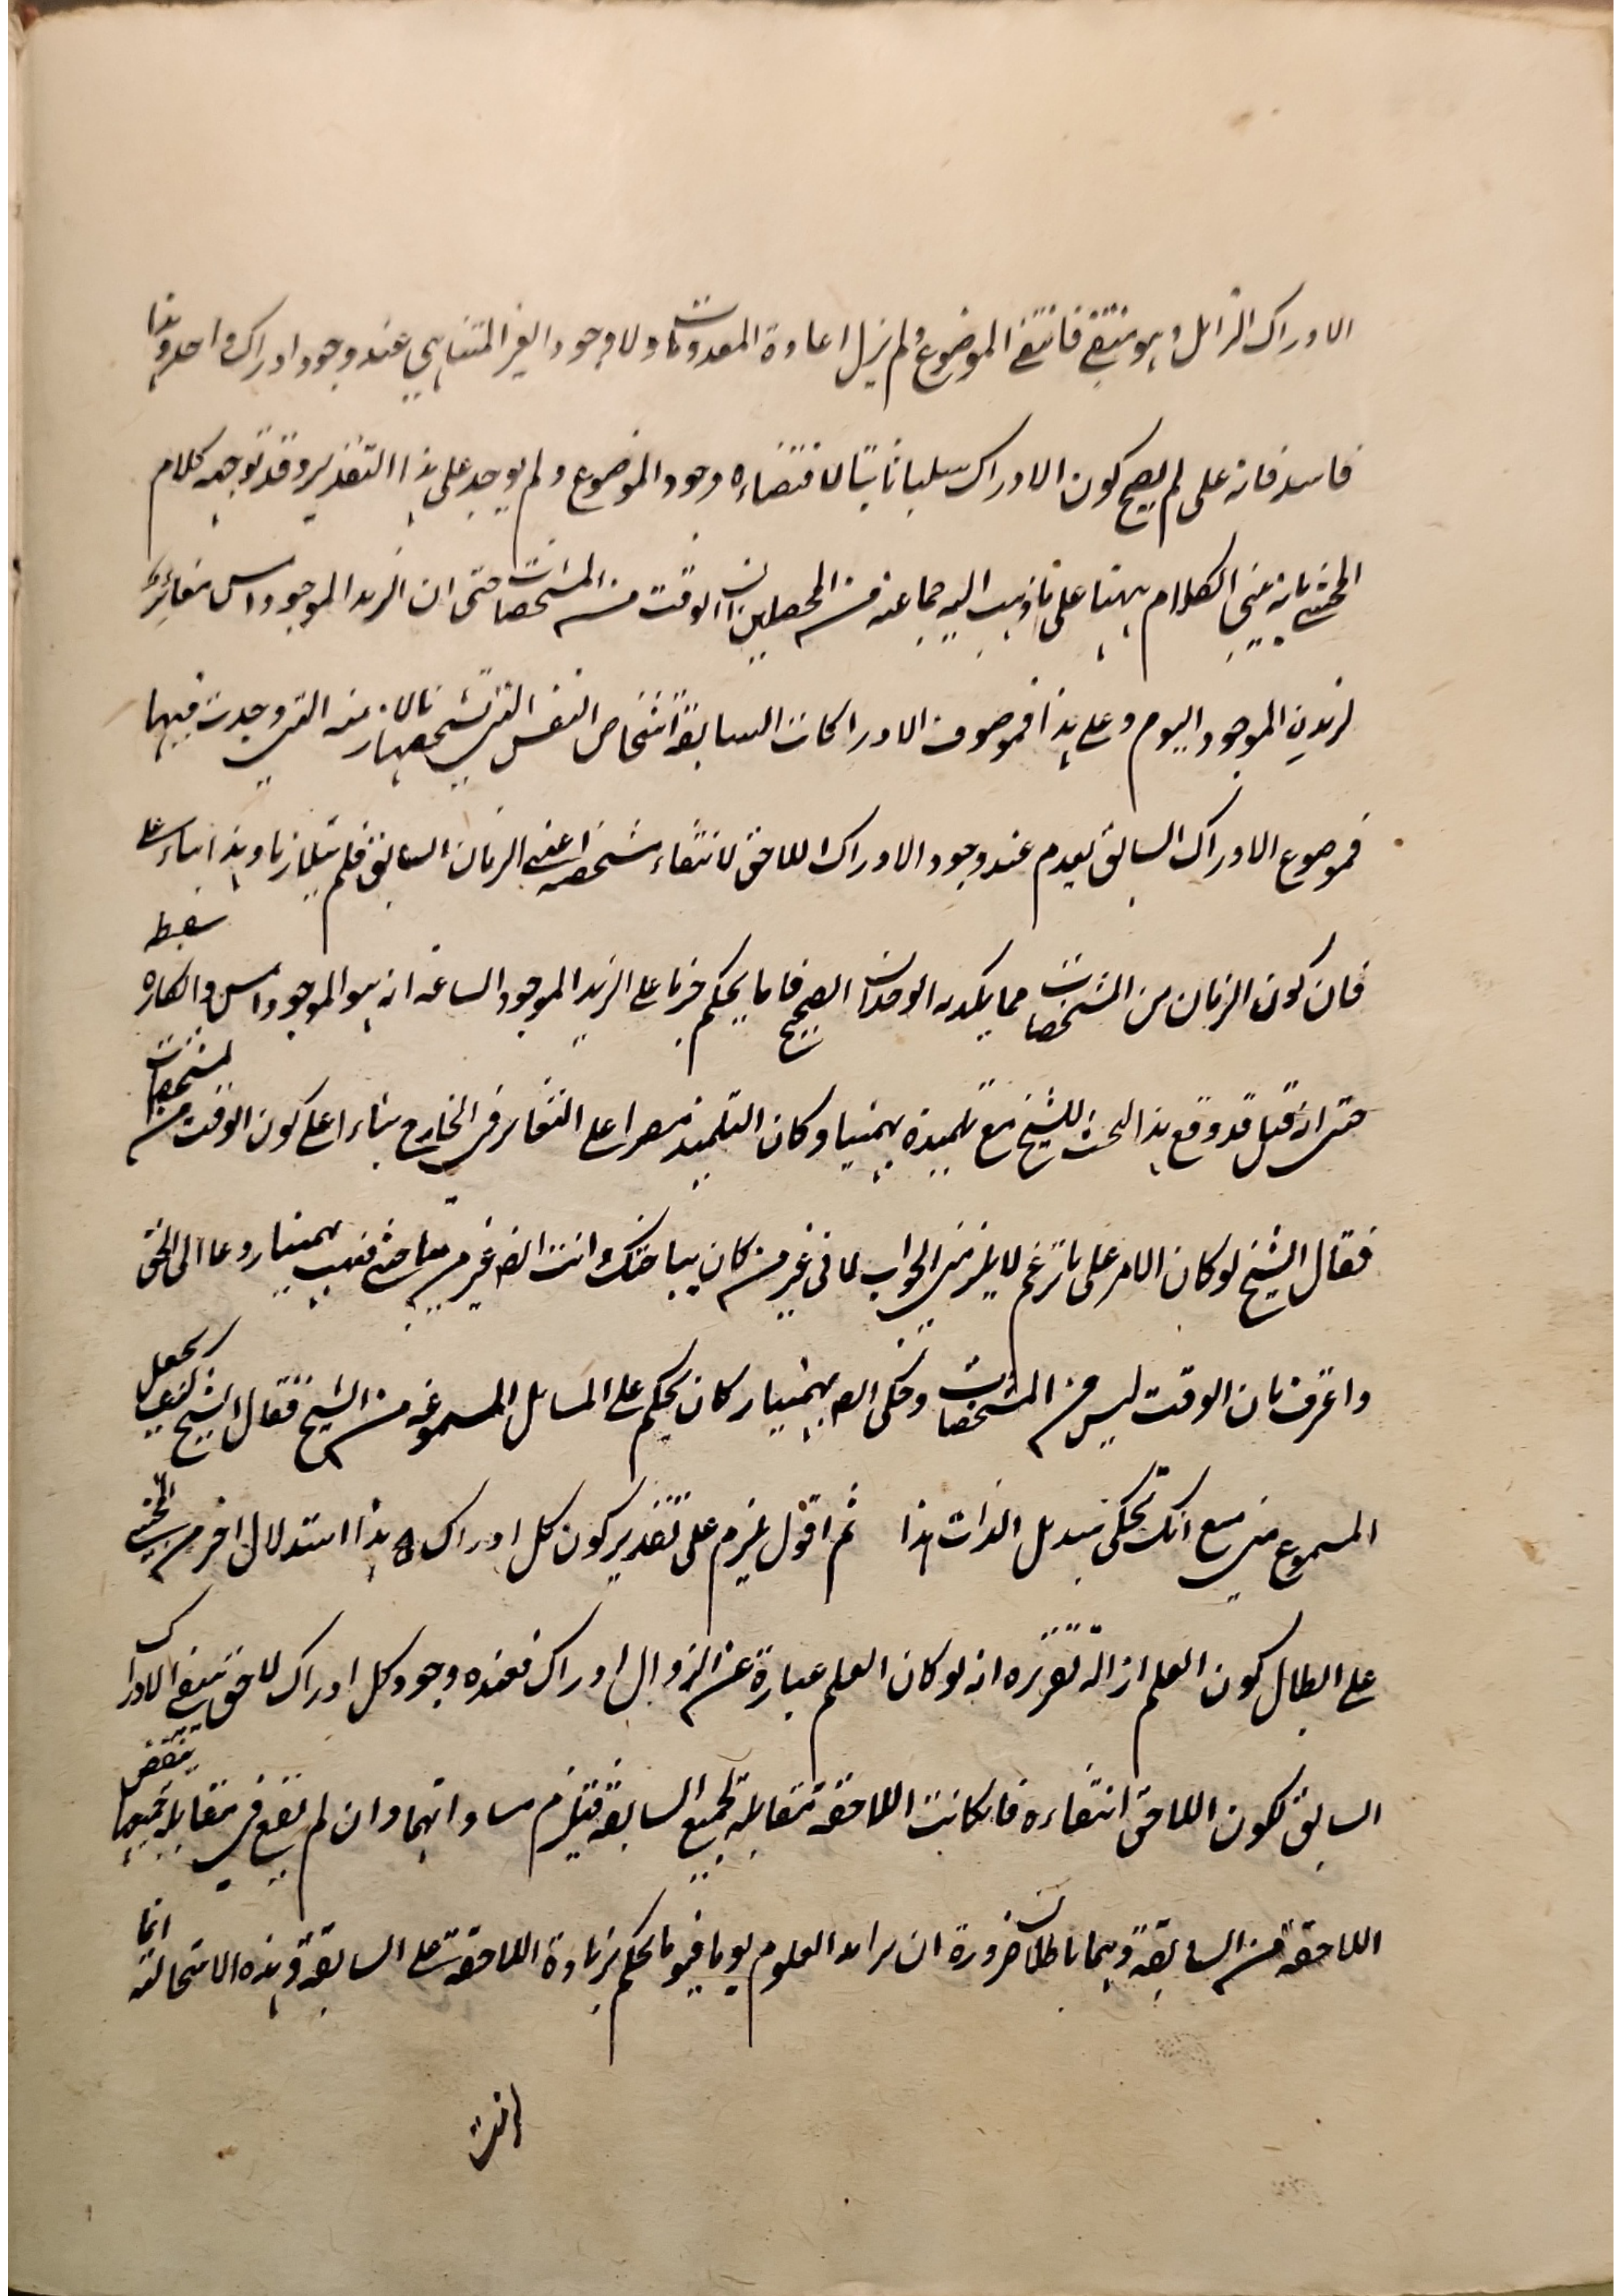 الادراك الزائل وهو منتف فانتفى الموضوع ولم يزل اعادة المعدومات ولا وجود الغير المتناهي عند وجود ادراك واحد وهذا
فاسد فانه على لم يصح كون الادراك سلبا ثابتا لاقتضاءه وجود الموضوع ولم يوجد على هذا التقدير وقد توجيه كلام
المحشي بانه بنى الكلام ههنا على ما ذهب اليه جماعة من المحصلين ان الوقت من المشخصات حتى ان الزيد الموجود امس مغائر
لزيد الموجود اليوم وعلى هذا فموصوف الادراكات السابقة اشخاص النفس التي تشخصها بالازمنة التي وجدت فيها
فموضوع الادراك السابق يعدم عند وجود الادراك اللاحق لانتفاء مشخصه اعني الزمان السابق فلم يتلازما وهذا بناء على
سفسطة
فان كون الزمان من المشخصات مما يكذبه الوجدان الصحيح فانا نحكم جزما على الزيد الموجود الساعة انه هو الموجود امس وانكاره
حتى انه قيل قد وقع هذا البحث للشيخ مع تلميذه بهمنيار وكان التلميذ مصرا على التغاير في الخارج بناء على كون الوقت من المشخصات
فقال الشيخ لو كان الامر على ما تزعم لا يلزمني الجواب لاني غير من كان يباحثك وانت ايضا غير من يباحثني فبهت بهمنيار وعاد الى الحق
واعترف بان الوقت ليس من المشخصات وحكى ايضا بهمنيار كان يحكم على المسائل المسموعة من الشيخ فقال الشيخ كيف يجعل
المسموع مني مع انك تحكي بتبدل الذات هذا ثم اقول يلزم على تقدير كون كل ادراك هذا استدلال اخر من المحشي
على ابطال كون العلم ازالة تقريره انه لو كان العلم عبارة عن الزوال ادراك فعنده وجود كل ادراك لاحق ينتفي الادراك
السابق لكون اللاحق انتفاءه فان كانت اللاحقة مقابلة لجميع السابقة فيلزم مساواتهما وان لم تقع في مقابلة جميعها ينقص
اللاحقة من السابقة وهما باطلان ضرورة ان العلوم يوما فيوما نحكم بزيادة اللاحقة على السابقة وهذه الاستحالة انما